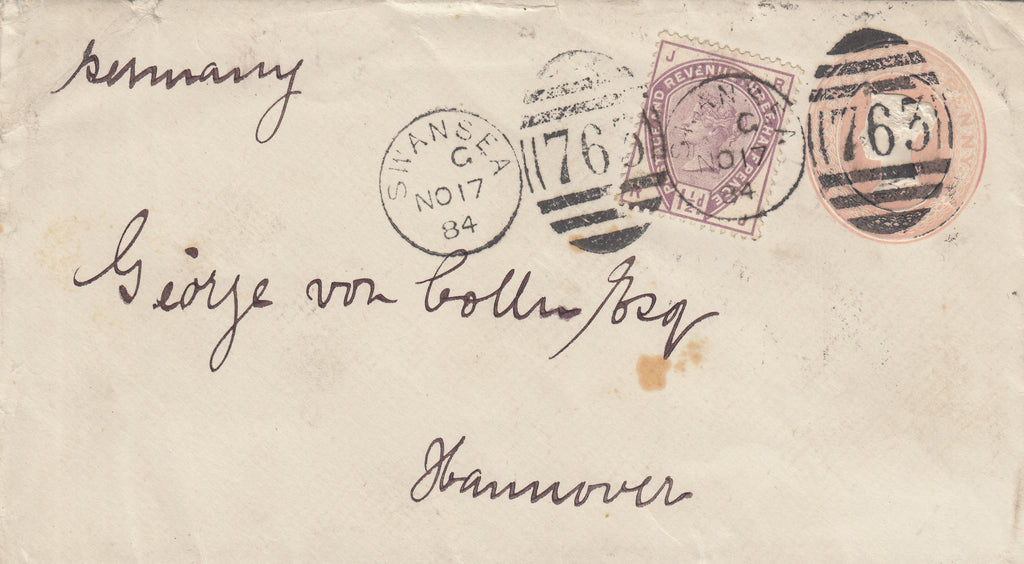 Germany
SWANSEA
C
NO 17
84
763
J
POSTAGE AND REVENUE THREE HALFPENCE
J
SWANSEA
C
NO 17
84
763
PENNY
George von Colln Esq
Hannover